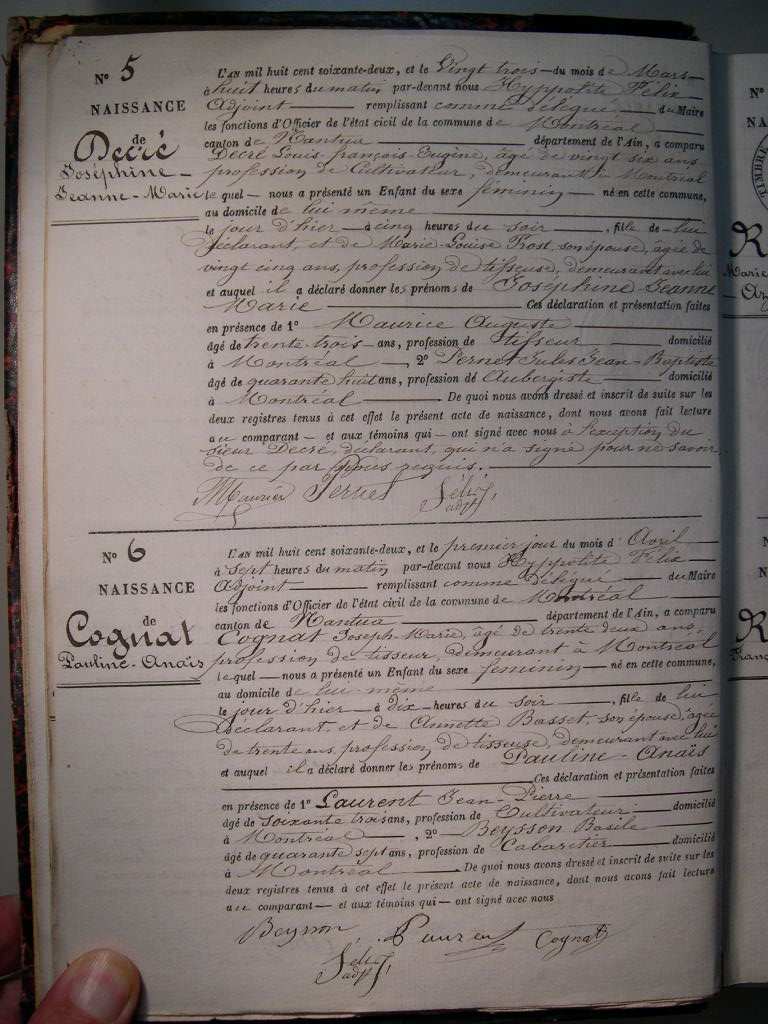 N° 5
NAISSANCE
de
Decré
Joséphine-
Jeanne-Marie
L'AN mil huit cent soixante-deux, et le Vingt trois du mois de Mars
à huit heures du matin par-devant nous Hyppolite Félix
Adjoint remplissant comme délégué du Maire
les fonctions d'Officier de l'état civil de la commune de Montréal
canton de Nantua département de l'Ain, a comparu
Decré Louis-françois-Eugène, âgé de vingt six ans
profession de Cultivateur, demeurant à Montréal
lequel — nous a présenté un Enfant du sexe féminin — né en cette commune,
au domicile de lui même
le jour d'hier — à cinq heures du soir, fille de lui
déclarant, et de Marie-Louise Frost, son épouse, âgée de
vingt cinq ans, profession de tisseuse, demeurant avec lui
et auquel il a déclaré donner les prénoms de Joséphine Jeanne
Marie Ces déclaration et présentation faites
en présence de 1° Maurice Auguste
âgé de trente trois ans, profession de tisseur domicilié
à Montréal, 2° Pernet Jules Jean-Baptiste
âgé de quarante huit ans, profession de Aubergiste domicilié
à Montréal De quoi nous avons dressé et inscrit de suite sur les
deux registres tenus à cet effet le présent acte de naissance, dont nous avons fait lecture
au comparant — et aux témoins qui — ont signé avec nous à l'exception du
sieur Decré, déclarant, qui n'a signé pour ne savoir
de ce par nous requis.
Maurice Pernet Félix
adjt
N° 6
NAISSANCE
de
Cognat
Pauline-Anaïs
L'AN mil huit cent soixante-deux, et le premier jour du mois d'Avril
à Sept heures du matin par-devant nous Hyppolite Félix
Adjoint remplissant comme délégué du Maire
les fonctions d'Officier de l'état civil de la commune de Montréal
canton de Nantua département de l'Ain, a comparu
Cognat Joseph-Marie, âgé de trente deux ans,
profession de tisseur, demeurant à Montréal
lequel — nous a présenté un Enfant du sexe féminin — né en cette commune,
au domicile de lui-même
le jour d'hier — à dix heures du soir, fille de lui
déclarant, et de Annette Basset, son épouse, âgée
de trente ans, profession de tisseuse, demeurant avec lui
et auquel il a déclaré donner les prénoms de Pauline-Anaïs
Ces déclaration et présentation faites
en présence de 1° Laurent Jean-Pierre
âgé de soixante trois ans, profession de Cultivateur domicilié
à Montréal, 2° Beysson Basile
âgé de quarante sept ans, profession de Cabaretier domicilié
à Montréal De quoi nous avons dressé et inscrit de suite sur les
deux registres tenus à cet effet le présent acte de naissance, dont nous avons fait lecture
au comparant — et aux témoins qui — ont signé avec nous
Beysson Laurent Cognat
Félix
adjt
N°
NA
TIMBRE
R
Marie
R